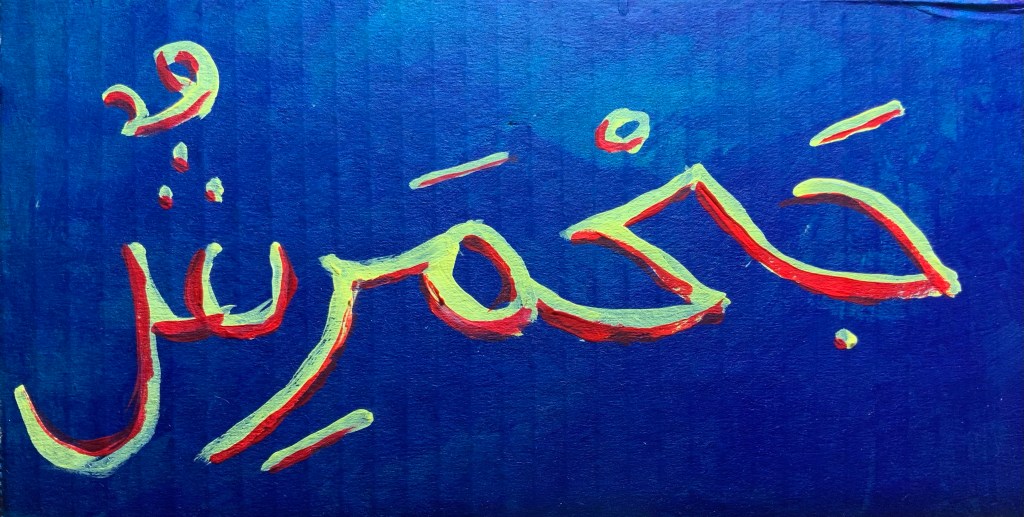 جَحْمَرِشٌ